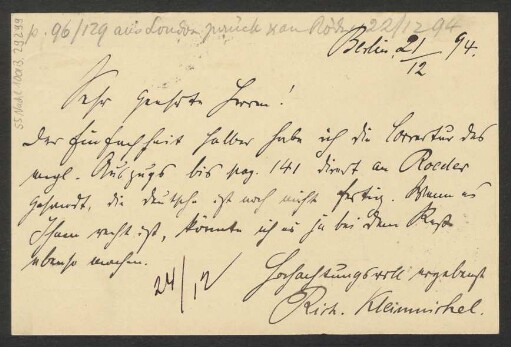 p. 96/129 aus London zurück x an Röder 22/12 94
Berlin 21/12 94.
Sehr geehrte Herren!
Der Einfachheit halber habe ich die Correctur des
engl. Auszugs bis pag. 141 direct an Roeder
gesandt, die deutsche ist noch nicht fertig. Wenn es
Ihnen recht ist, könnte ich es ja bei dem Rest
ebenso machen.
24/12
Hochachtungsvoll ergebenst
Rich. Kleinmichel.